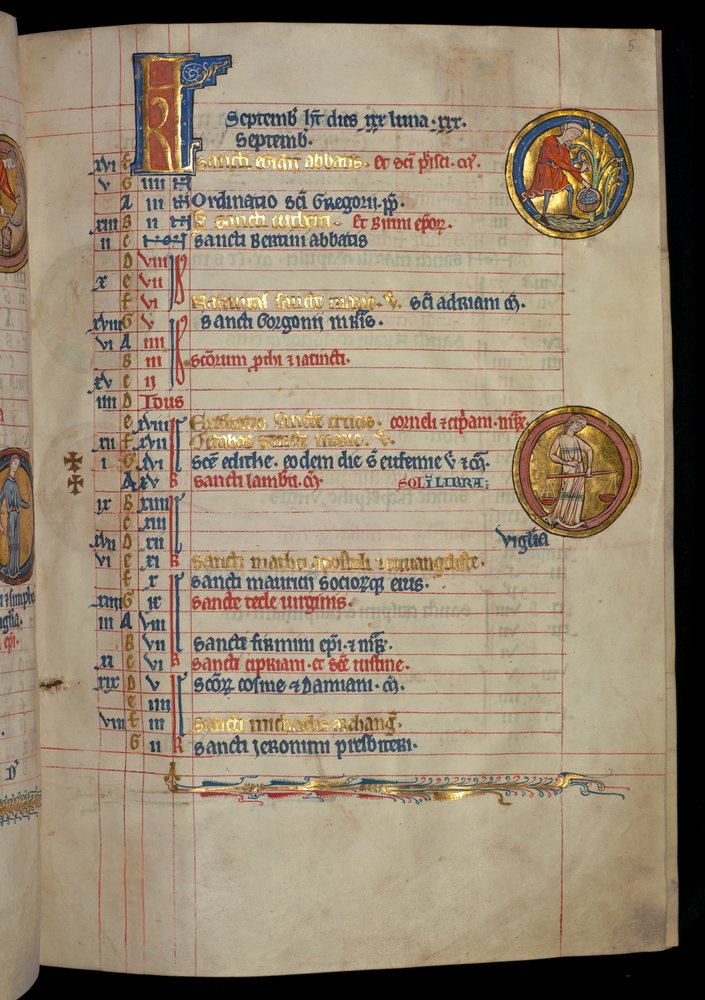 5
KL Septemb' ht dies xxx luna xxx.
Septemb'.
xvi f Sancti egidii abbatis. et sci prisci. m'.
v G iiii N
A iii N Ordinatio sci Gregorii. pp.
xiii B ii N Sancti cuthberti. et Birini epor'.
ii C Non Sancti Bertini abbatis
D viii
x E vii
f vi Natiuitas sancte marie. v. sci adriani m'.
xviii G v Sancti Gorgonii mris.
vi A iiii
B iii Scorum prothi et iacincti.
xv C ii
iiii D Idus
E xviii Exaltatio sancte crucis. cornelii et cipriani. mr'.
xii f xvii Octabas sancte marie. v.
i G xvi Sce edithe. eodem die s eufemie v et m'.
A xv k Sancti lamb'ti. m'. SOL I LIBRA;
ix B xiiii
C xiii
xvii D xii Vigilia
vi E xi k Sancti mathei apostoli et euuangeliste.
f x Sancti mauricii sociorq; eius.
xiiii G ix Sancte tecle uirginis.
iii A viii
B vii Sancti firmini epi. et mr'.
xi C vi k Sancti cipriani. et sce iustine.
xix D v Scor' cosme et Damiani. m'.
E iiii
viii f iii Sancti michaelis archang'.
G ii k Sancti jeronimi presbiteri.